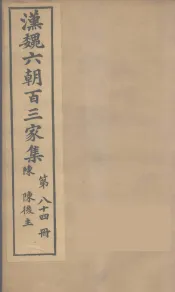 漢魏六朝百三家集
陳 陳後主
第八十四冊